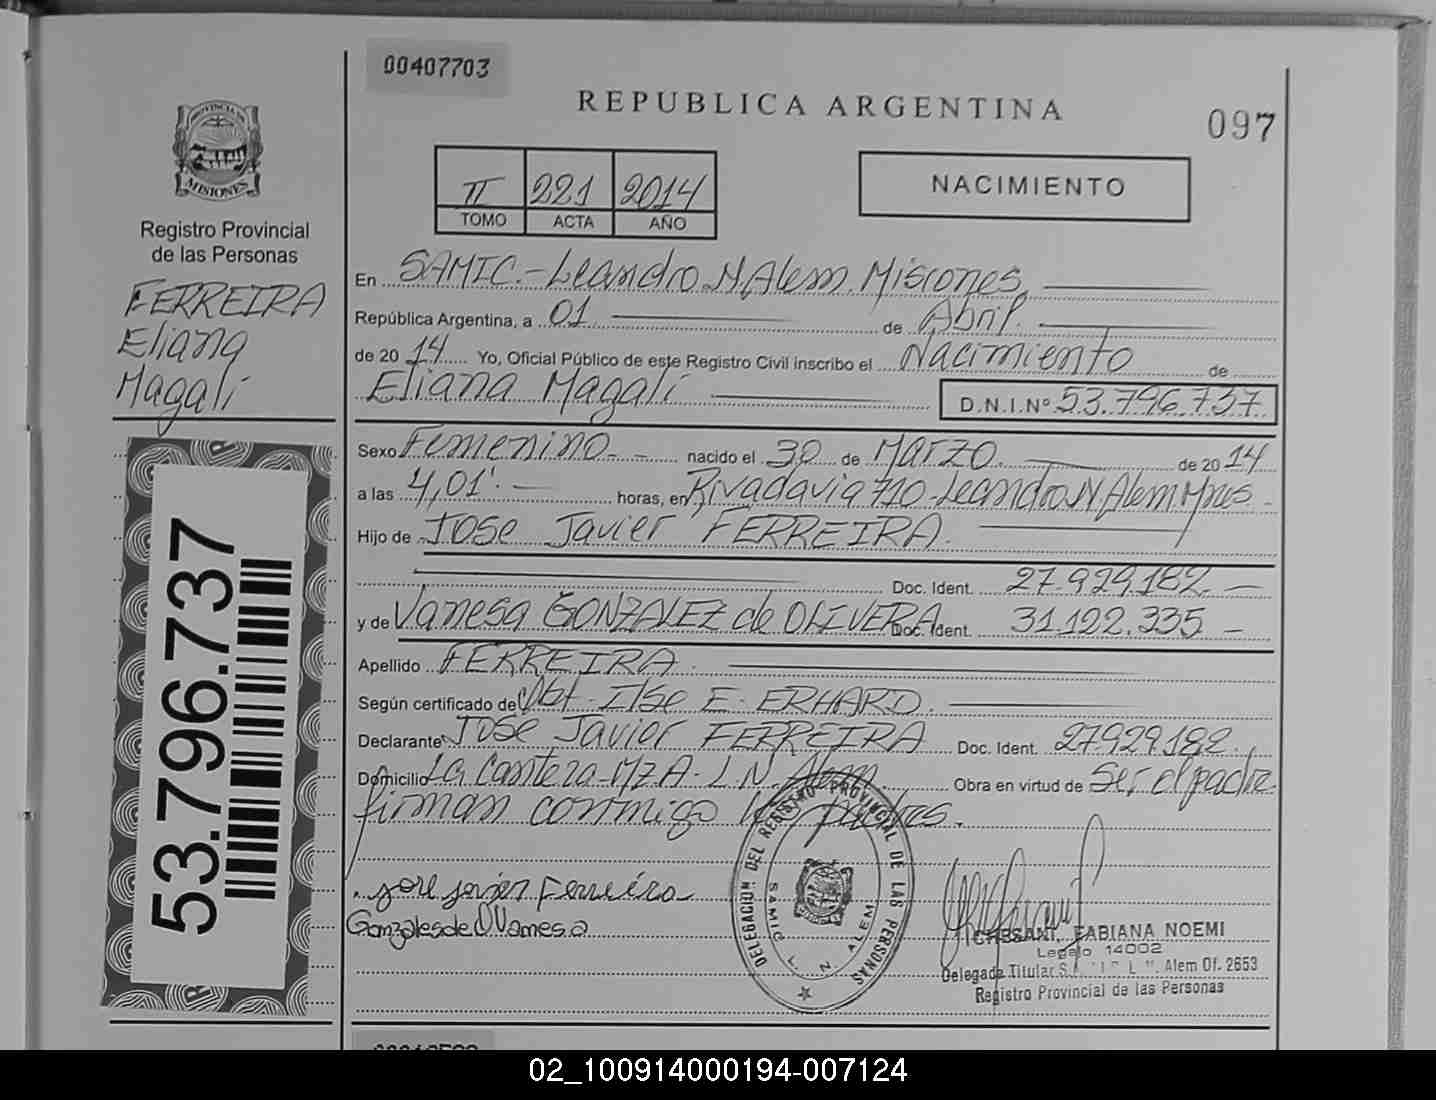 00407703
REPUBLICA ARGENTINA
097
PROVINCIA DE
MISIONES
Registro Provincial
de las Personas
FERREIRA
Eliana
Magali
II 221 2014
TOMO ACTA AÑO
NACIMIENTO
En SAMIC.- Leandro N Alem. Misiones
República Argentina, a 01 de Abril.
de 2014 Yo, Oficial Público de este Registro Civil inscribo el Nacimiento de
Eliana Magali D.N.I.Nº 53.796.737
Sexo Femenino nacido el 30 de Marzo de 2014
a las 4,01'. horas, en Rivadavia 710-Leandro N Alem Mnes.
Hijo de Jose Javier FERREIRA.
Doc. Ident. 27.929.182.-
y de Vanesa GONZALEZ de OLIVERA Doc. Ident. 31.122.335-
Apellido FERREIRA.
Según certificado de Obt. Ilse E. ERHARD.
Declarante Jose Javier FERREIRA Doc. Ident. 27929182.
Domicilio La Cantera-MzA-L.N. Alem. Obra en virtud de Ser el padre
firman conmigo los padres.
53.796.737
Jose Javier Ferreira
Gonzales de O Vanesa
DELEGACION DEL REGISTRO PROVINCIAL DE LAS PERSONAS
SAMIC L. N. ALEM
FABIANA NOEMI
Legajo 14002
Delegada Titular S.A.M.I.C L. N. Alem Of. 2653
Registro Provincial de las Personas
02_100914000194-007124